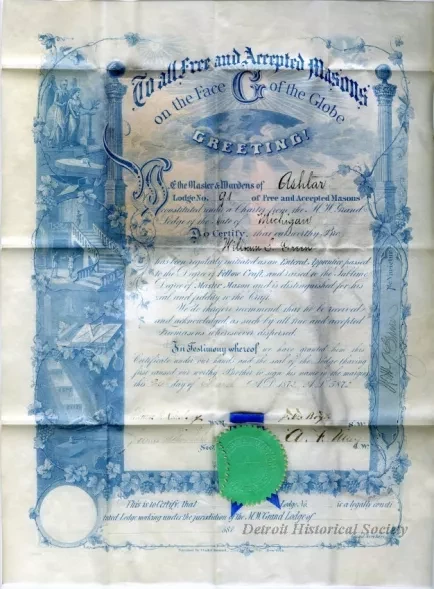 To all Free and Accepted Masons
on the Face G of the Globe
GREETING!
We the Master & Wardens of Ashlar
Lodge No. 91 of Free and Accepted Masons
constituted under a Charter from the M.W. Grand
Lodge of the State of Michigan
Do Certify, that our worthy Bro.
William
has been regularly initiated as an Entered Apprentice passed
to the Degree of Fellow Craft, and raised to the Sublime
Degree of Master Mason and is distinguished for his
zeal and fidelity to the Craft.
We do therefore recommend that he be received
and acknowledged as such by all true and accepted
Freemasons wheresoever dispersed.
In Testimony whereof we have granted him this
Certificate under our hands and the seal of the Lodge having
first caused our worthy Brother to sign his name in the margin
this day of A.D. 1873, A.L. 5873
W.M.
Sec. J.W.
This is to Certify, that Lodge No. is a legally consti-
tuted Lodge working under the jurisdiction of the M.W. Grand Lodge of
188
Detroit Historical Society